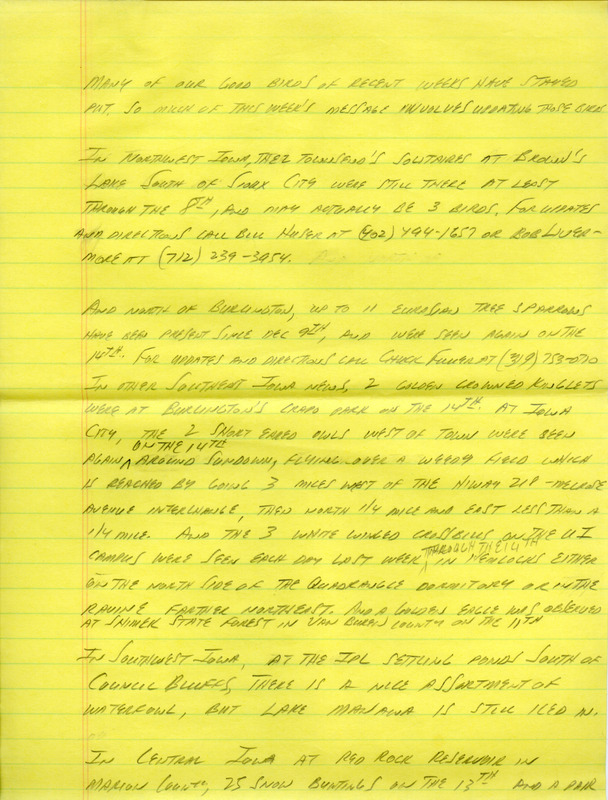 MANY OF OUR GOOD BIRDS OF RECENT WEEKS HAVE STAYED
PUT, SO MUCH OF THIS WEEK'S MESSAGE INVOLVES UPDATING THOSE BIRDS
IN NORTHWEST IOWA, THE 2 TOWNSEND'S SOLITAIRES AT BROWN'S
LAKE SOUTH OF SIOUX CITY WERE STILL THERE AT LEAST
THROUGH THE 8TH, AND MAY ACTUALLY BE 3 BIRDS. FOR UPDATES
AND DIRECTIONS CALL BILL HUSER AT (402) 494-1657 OR BOB LIVER-
MORE AT (712) 239-3954.
AND NORTH OF BURLINGTON, UP TO 11 EURASIAN TREE SPARROWS
HAVE BEEN PRESENT SINCE DEC 9TH, AND WERE SEEN AGAIN ON THE
14TH. FOR UPDATES AND DIRECTIONS CALL CHUCK FULLER AT (319) 753-070
IN OTHER SOUTHEAST IOWA NEWS, 2 GOLDEN CROWNED KINGLETS
WERE AT BURLINGTON'S CRAPO PARK ON THE 14TH. AT IOWA
CITY, THE 2 SHORT EARED OWLS WEST OF TOWN WERE SEEN
ON THE 14TH
AGAIN ^ AROUND SUNDOWN, FLYING OVER A WEEDY FIELD WHICH
IS REACHED BY GOING 3 MILES WEST OF THE HIWAY 218-MELROSE
AVENUE INTERCHANGE, THEN NORTH 1/4 MILE AND EAST LESS THAN A
1/4 MILE. AND THE 3 WHITE WINGED CROSSBILLS ON THE U I
CAMPUS WERE SEEN EACH DAY LAST WEEK THROUGH THE 14TH IN HEMLOCKS EITHER
ON THE NORTH SIDE OF THE QUADRANGLE DORMITORY OR IN THE
RAVINE FARTHER NORTHEAST. AND A GOLDEN EAGLE WAS OBSERVED
AT SHIMEK STATE FOREST IN VAN BUREN COUNTY ON THE 11TH
IN SOUTHWEST IOWA, AT THE IPL SETTLING PONDS SOUTH OF
COUNCIL BLUFFS, THERE IS A NICE ASSORTMENT OF
WATERFOWL, BUT LAKE MANAWA IS STILL ICED IN.
IN CENTRAL IOWA AT RED ROCK RESERVOIR IN
MARION COUNTY, 25 SNOW BUNTINGS ON THE 13TH AND A PAIR